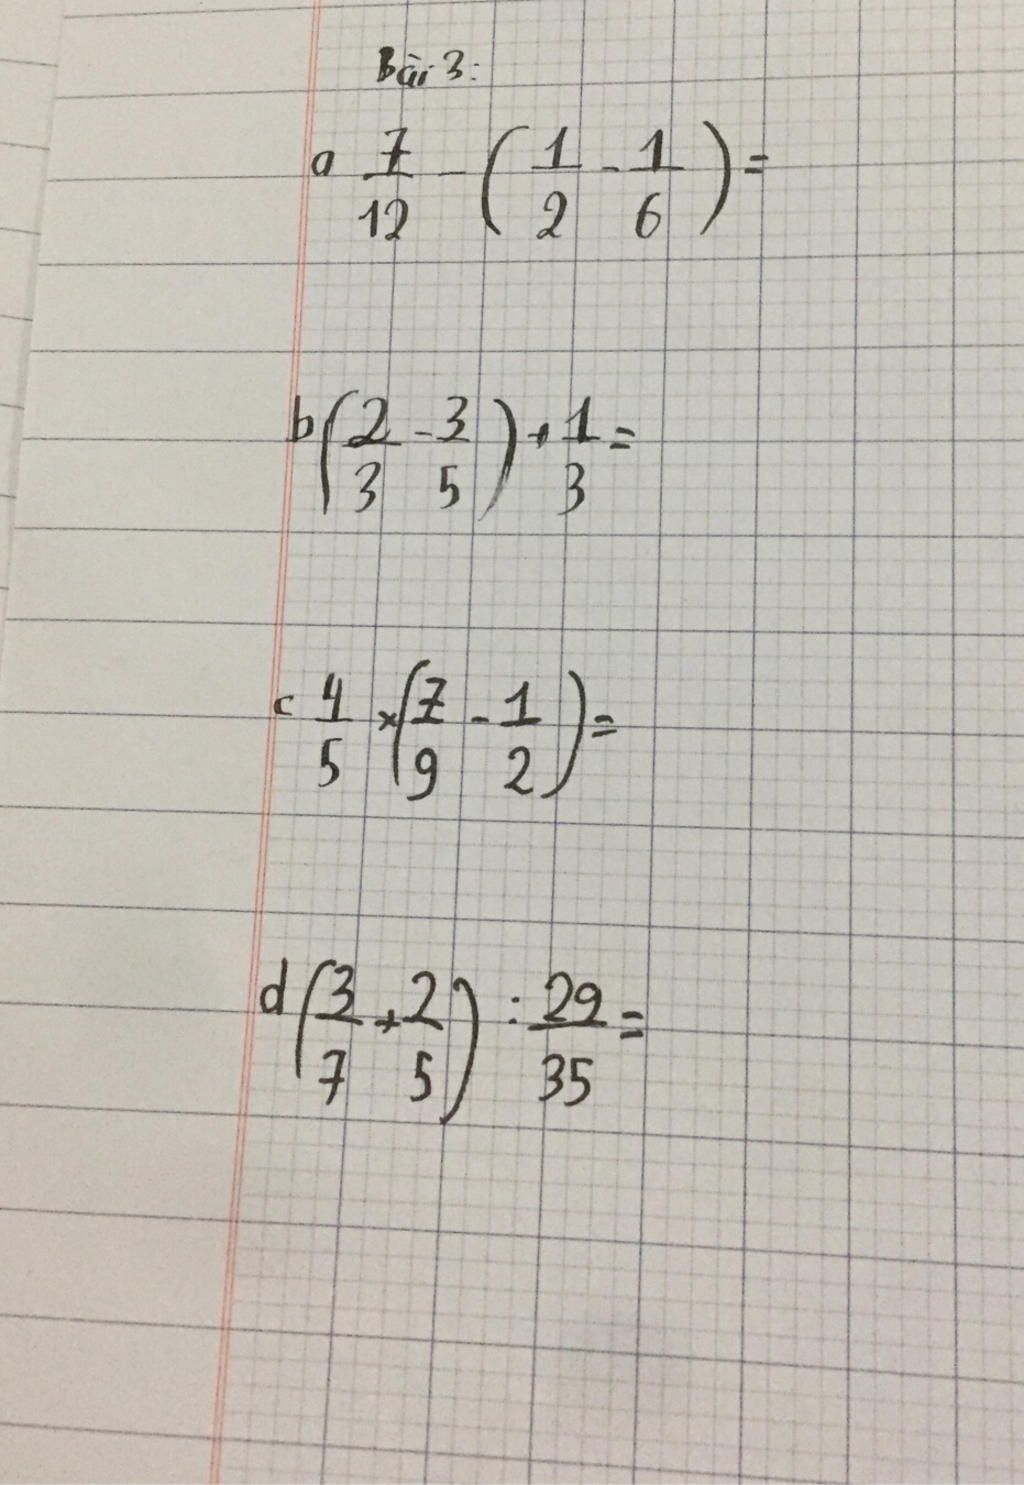 Bài 3:
a 7/12 - (1/2 - 1/6) =
b (2/3 - 3/5) + 1/3 =
c 4/5 × (7/9 - 1/2) =
d (3/7 + 2/5) : 29/35 =